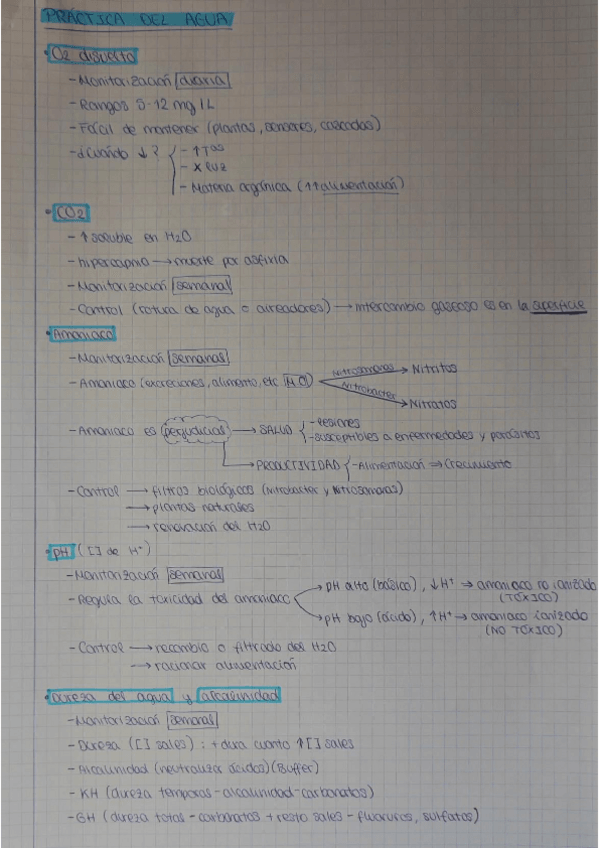 PRÁCTICA DEL AGUA
• O2 disuelto
- Monitorización diaria
- Rangos 5-12 mg/L
- Fácil de mantener (plantas, sensores, cascadas)
- ¿Cuándo ↓? - ↑Tas
- X luz
- Materia orgánica (↑↑alimentación)
• CO2
- ↑ soluble en H2O
- hipercapnia → muerte por asfixia
- Monitorización semanal
- Control (rotura de agua o aireadores) → intercambio gaseoso es en la superficie
• Amoniaco
- Monitorización semanal
- Amoniaco (excreciones, alimento, etc M.O) Nitrosomonas → Nitritos
Nitrobacter → Nitratos
- Amoniaco es perjudicial → SALUD - lesiones
- susceptibles a enfermedades y parásitos
→ PRODUCTIVIDAD - Alimentación ⇒ Crecimiento
- Control → filtros biológicos (Nitrobacter y Nitrosomonas)
→ plantas naturales
→ renovación del H2O
• pH ([ ] de H⁺)
- Monitorización semanal
- Regula la toxicidad del amoniaco → pH alto (básico), ↓H⁺ → amoniaco no ionizado (TÓXICO)
→ pH bajo (ácido), ↑H⁺ → amoniaco ionizado (NO TÓXICO)
- Control → recambio o filtrado del H2O
→ racionar alimentación
• Dureza del agua y alcalinidad
- Monitorización semanal
- Dureza ([ ] sales) : + dura cuanto ↑[ ] sales
- Alcalinidad (neutralizar ácidos) (Buffer)
- KH (dureza temporal - alcalinidad - carbonatos)
- GH (dureza total - carbonatos + resto sales - fluoruros, sulfatos)